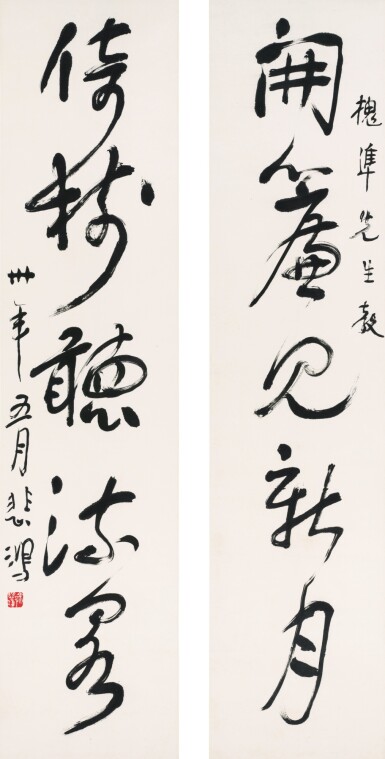 開簾見新月
槐準先生教
倚樹聽流泉
卅年五月悲鴻